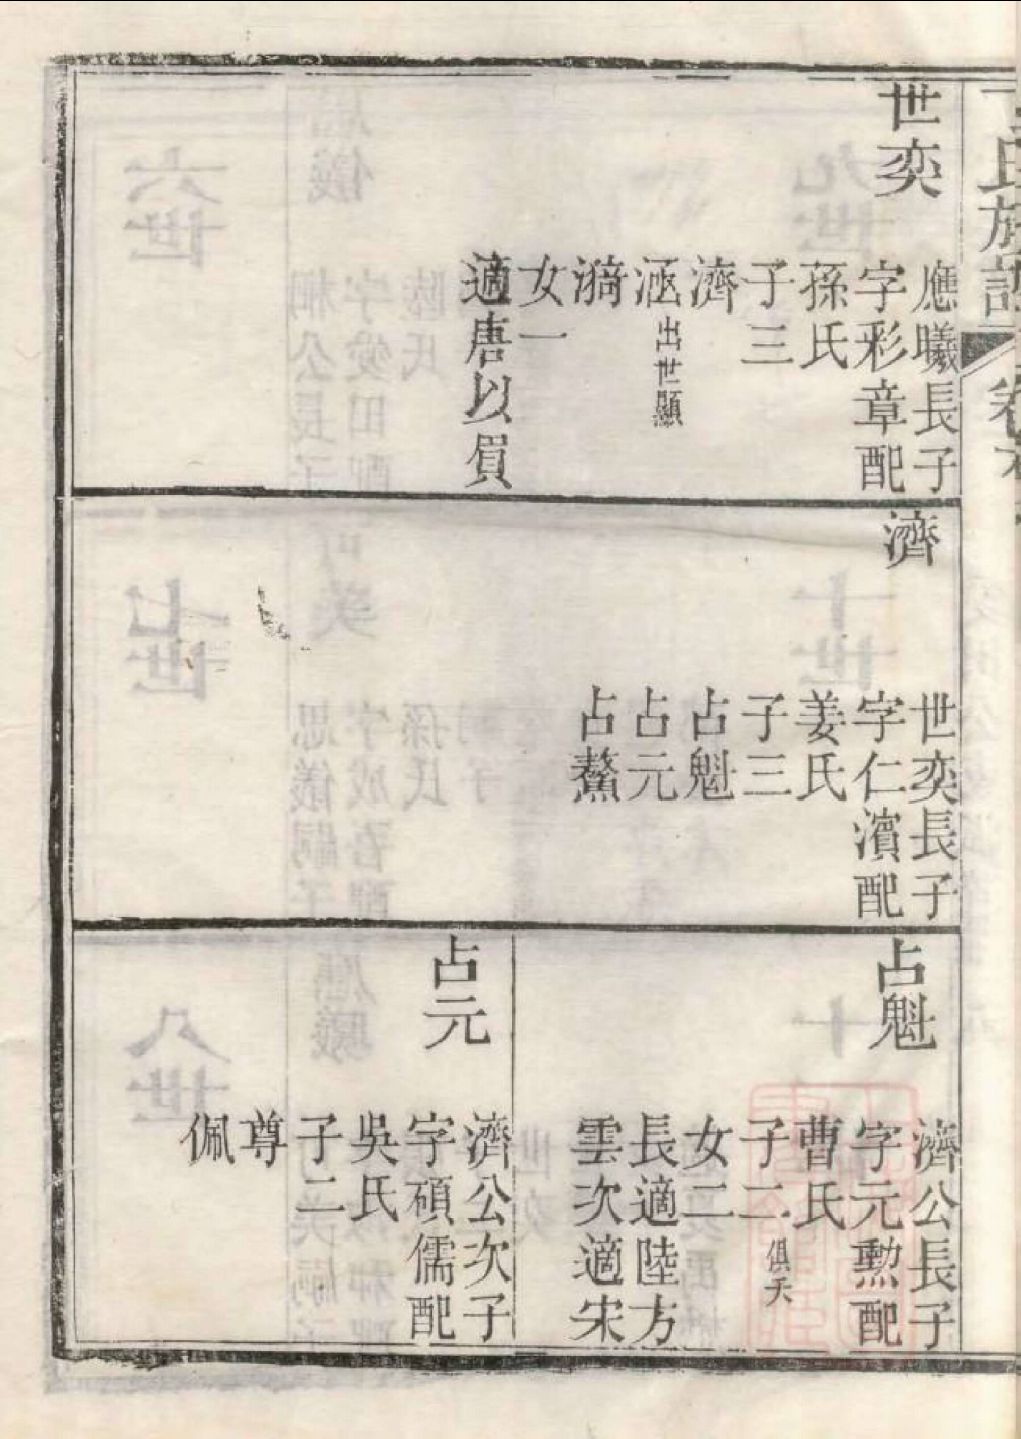 氏族譜
世奕
應曦長子
字彩章配
孫氏
子三
濟
涵出世顯
漪
女一
適唐以貭
濟
世奕長子
字仁濱配
姜氏
子三
占魁
占元
占鰲
占魁
濟公長子
字元勲配
曹氏
子二俱夭
女二
長適陸方
雲次適宋
占元
濟公次子
字碩儒配
吳氏
子二
尊
佩